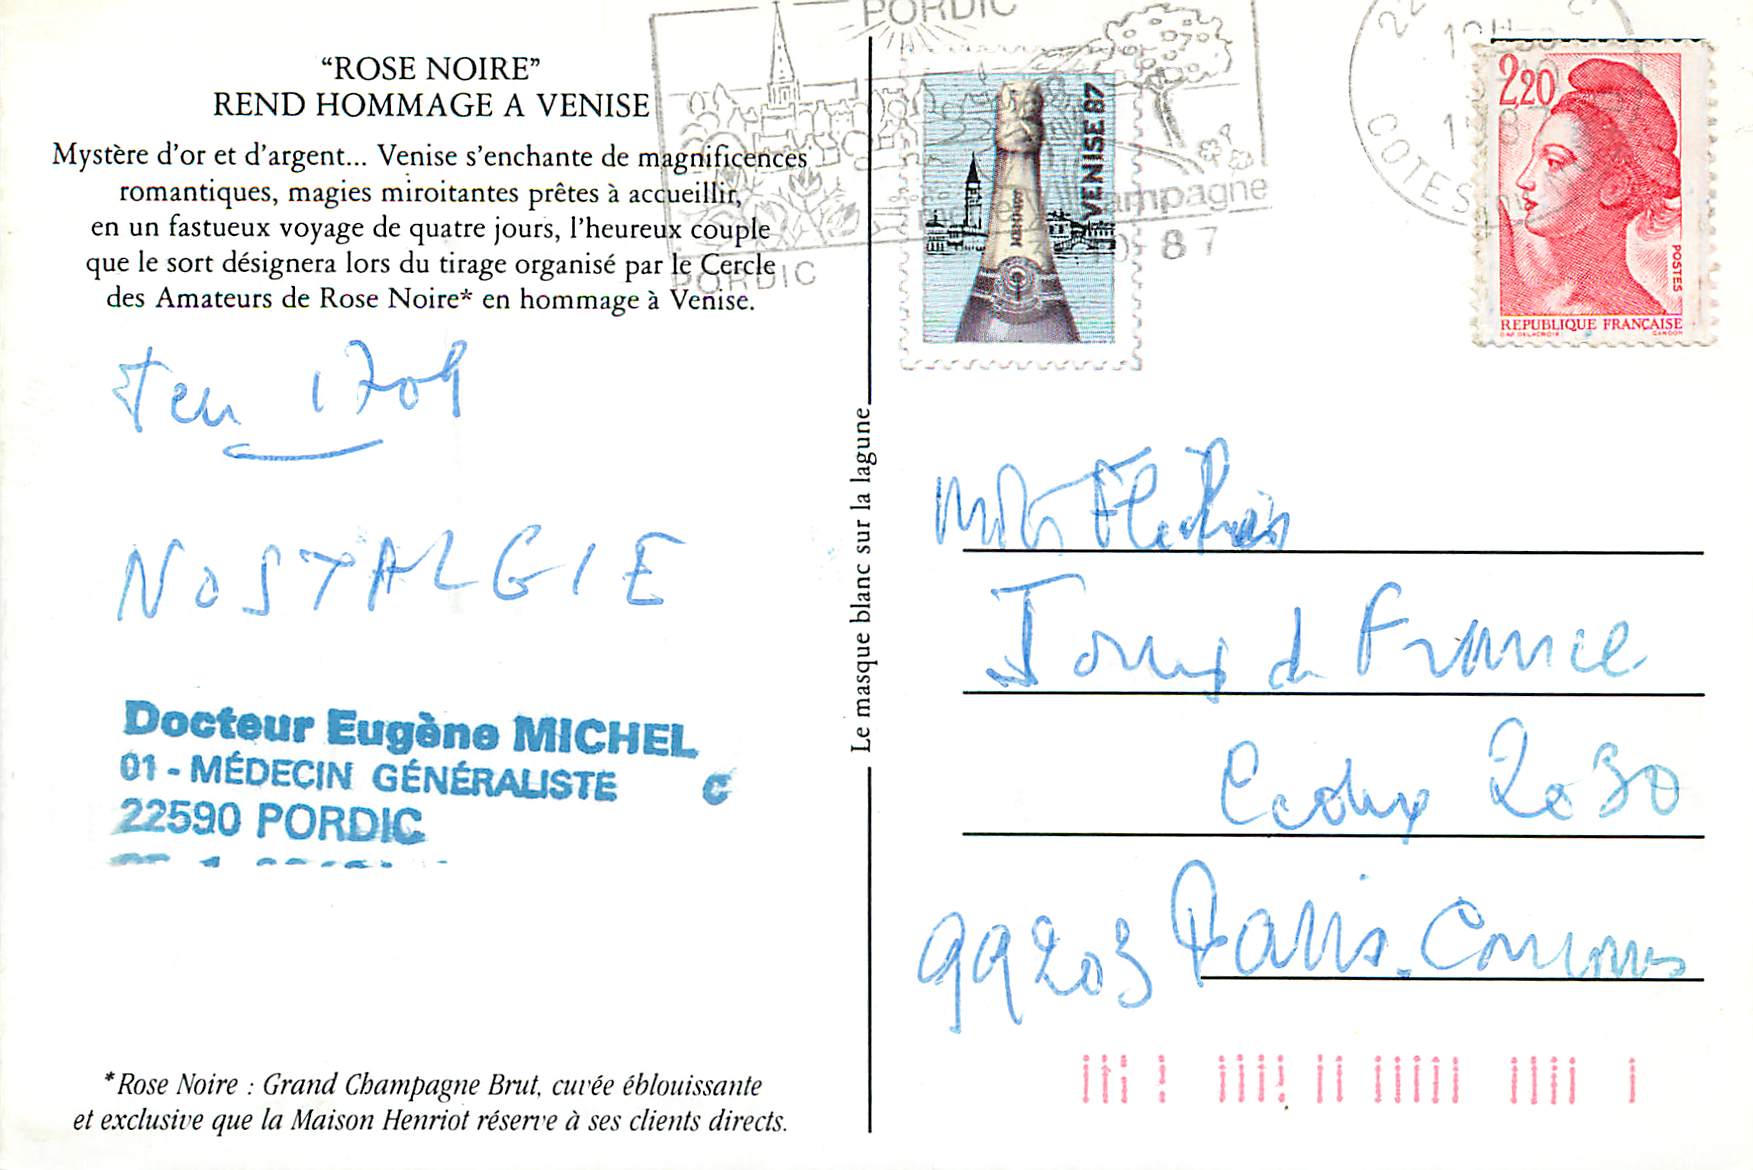 “ROSE NOIRE”
REND HOMMAGE A VENISE
Mystère d'or et d'argent... Venise s'enchante de magnificences
romantiques, magies miroitantes prêtes à accueillir,
en un fastueux voyage de quatre jours, l'heureux couple
que le sort désignera lors du tirage organisé par le Cercle
des Amateurs de Rose Noire* en hommage à Venise.
Jeu 1709
NOSTALGIE
Docteur Eugène MICHEL
01 - MÉDECIN GÉNÉRALISTE
22590 PORDIC
*Rose Noire : Grand Champagne Brut, cuvée éblouissante
et exclusive que la Maison Henriot réserve à ses clients directs.
Le masque blanc sur la lagune
PORDIC
PORDIC
87
VENISE 87
HENRIOT
22
COTES
2,20
POSTES
REPUBLIQUE FRANÇAISE
Jours de France
Cedex 2030
99203 Paris. Concours